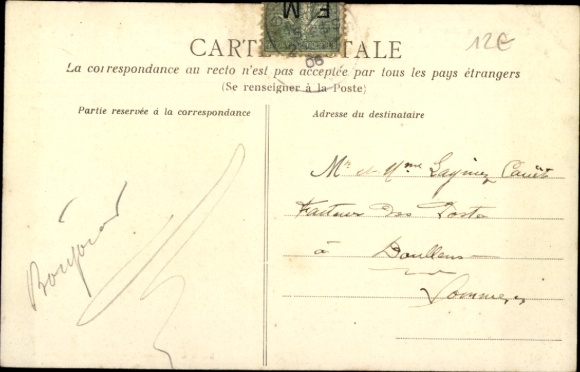 F M
06
12€
CARTE POSTALE
La correspondance au recto n'est pas acceptée par tous les pays étrangers
(Se renseigner à la Poste)
Partie reservée à la correspondance
Adresse du destinataire
Bonjour
Mr et Mme
Facteur des Postes
à Doullens
Somme